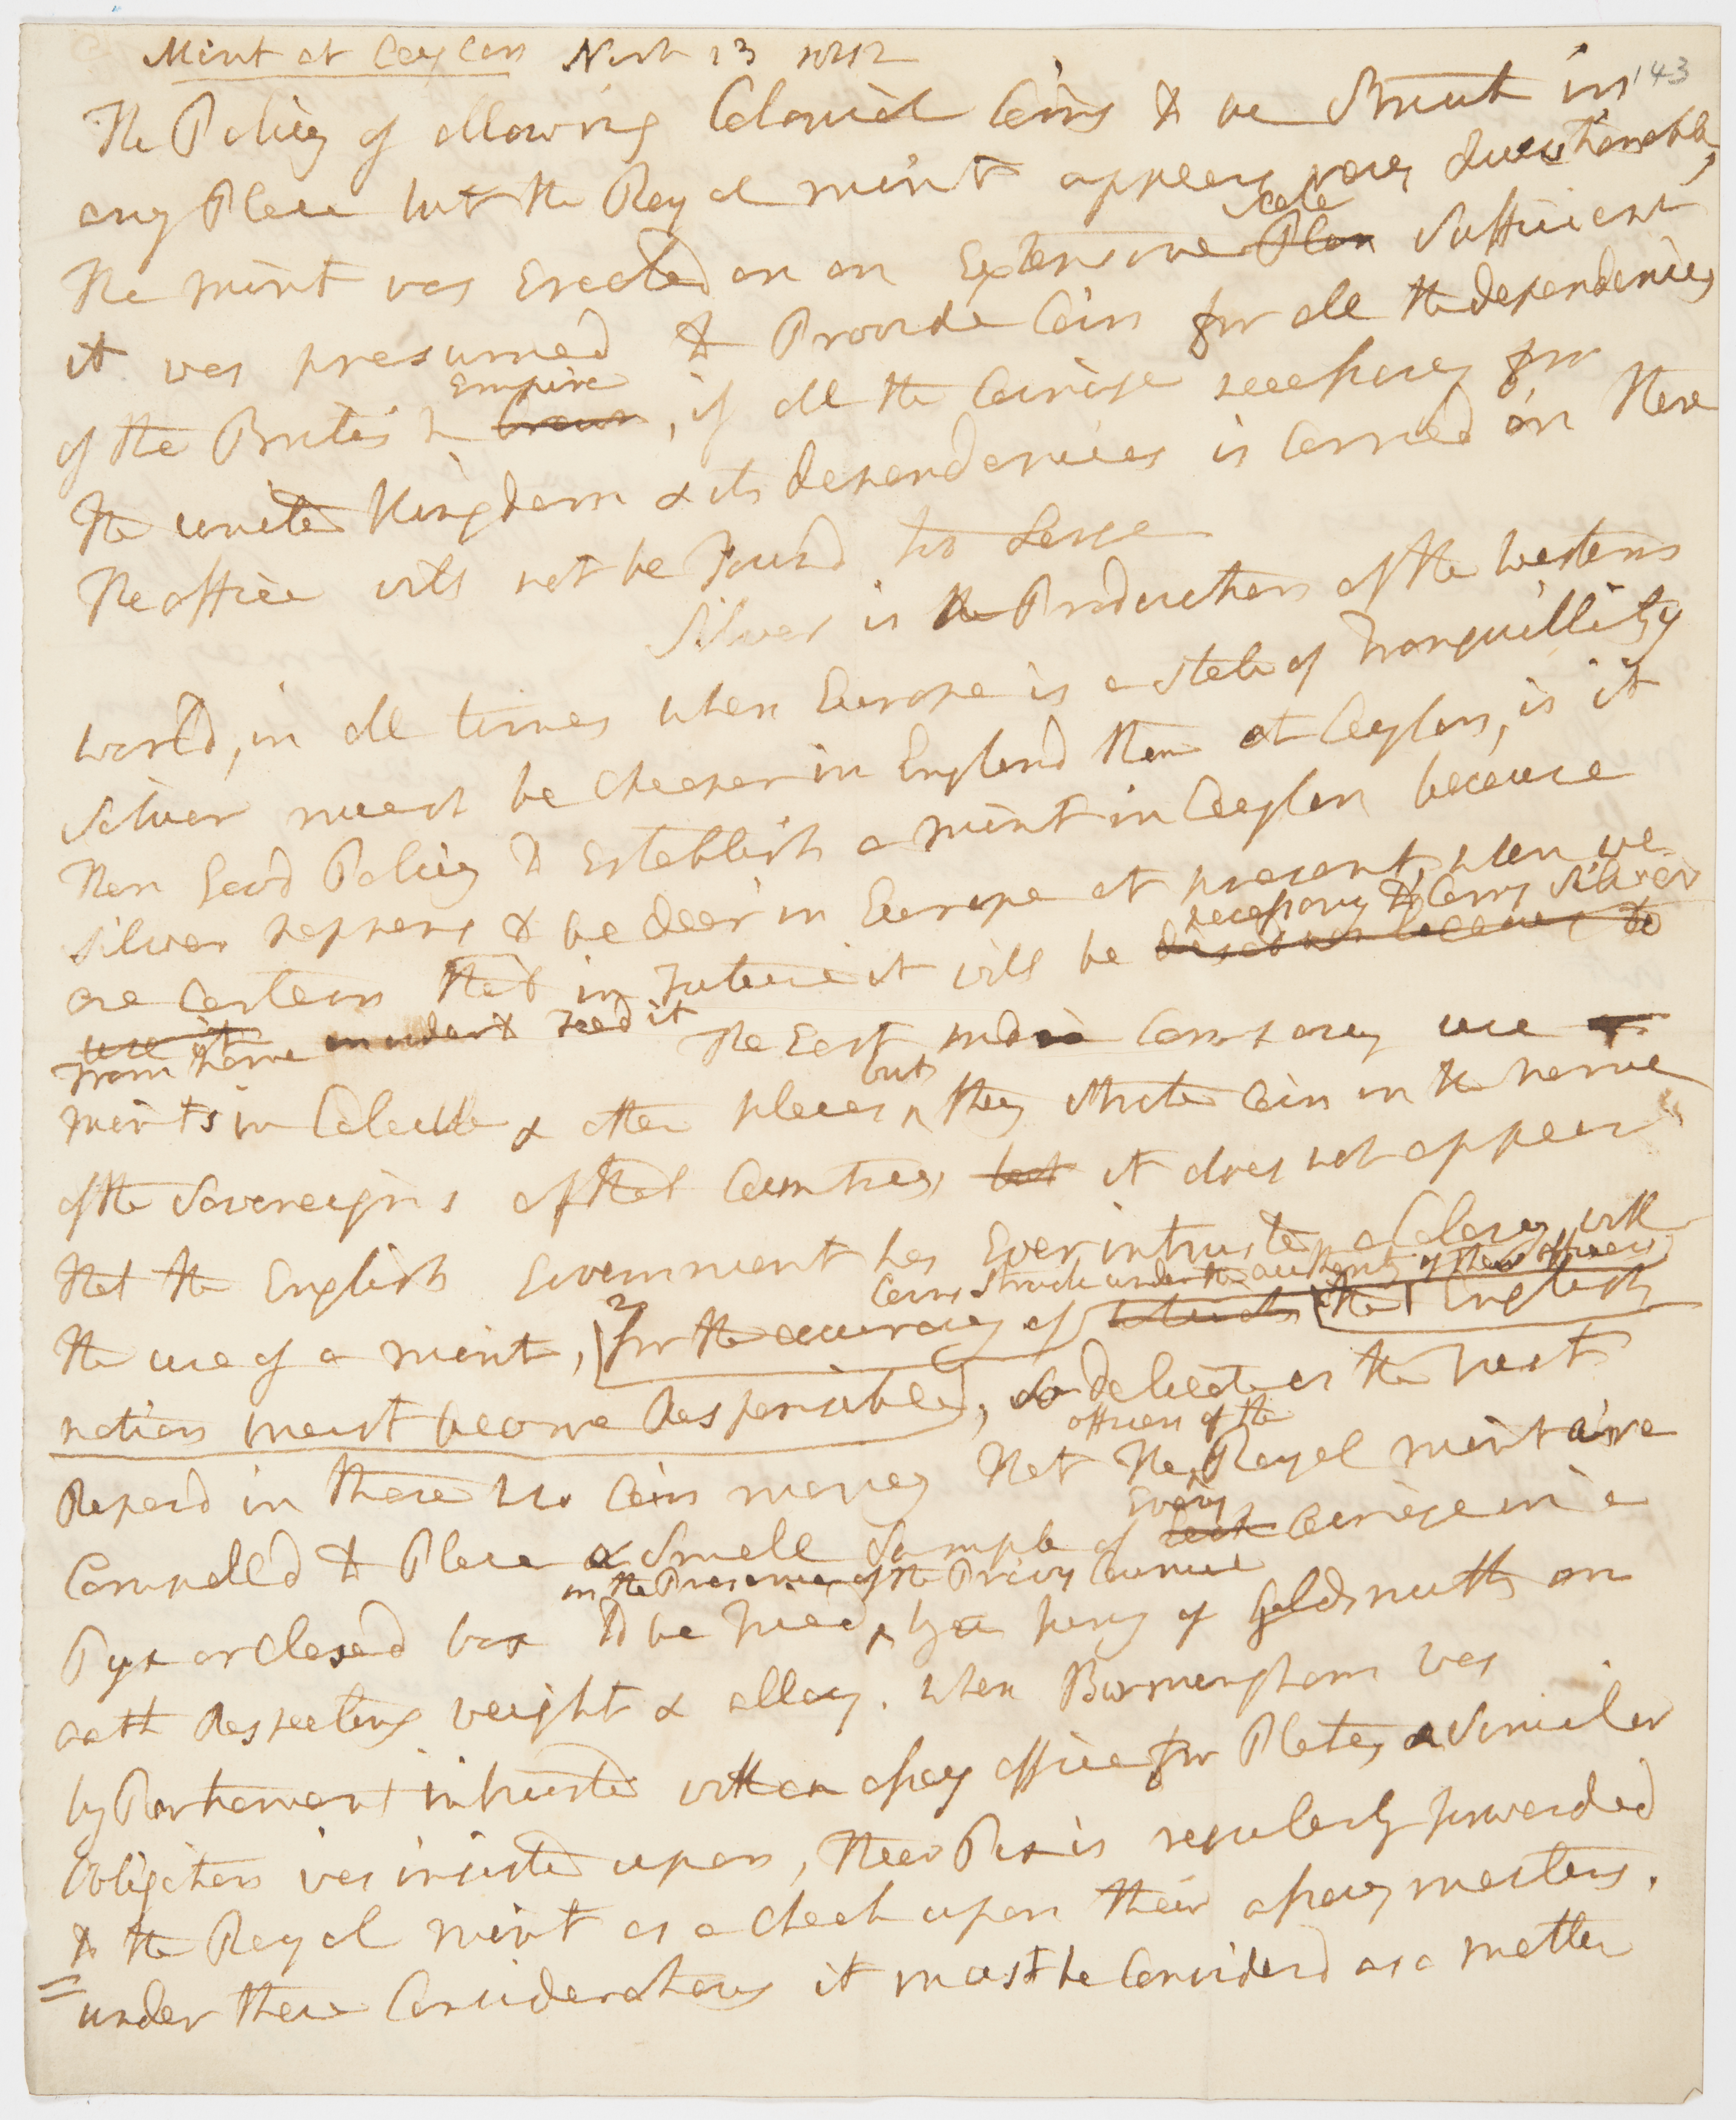 Mint at Ceylon Novr 13 1812
143
The Policy of allowing Colonial Coins to be Struck in
any Place but the Royal mint appears very Questionable,
The mint was Erected on an Extensive Plan scale Sufficient
it was presumed to Provide Coin for all the dependencies
of the British Crown Empire, if all the Coinage necessary for
the united Kingdom & its dependencies is Carried on there
The office will not be Found too Large
Silver is the Production of the western
world, in all times when Europe is a state of Tranquillity
Silver must be cheaper in England than at Ceylon, is it
then Good Policy to Establish a mint in Ceylon because
silver happens to be dear in Europe at present, when we
are Certain that in Future it will be necessary to Carry Silver
use it from home in order to Feed it The East india Company use
mints in Calcutta & other places but they strike Coin in the name
of the Sovereigns of that Countrey, but it does not appear
that the English Government has Ever intrusted a Colony with
the use of a mint, for the accuracy of Coins Struck under the authority of their officers the English
nation must become Responsible, So delicate is the trust
Reposd in those who Coin money that the officers of the Royal mint are
Compelld to Place a Small Sample of Every Coinage in a
Pyx or Closed box to be tried in the Presence of the Privy Council by a jury of Goldsmiths on
oath Respecting weight & allay. when Birmingham was
by Parliament intrusted with an assay office for Plate, a Similar
Obligation was insisted upon, their Pix is regularly forwarded
to the Royal mint as a check upon their assay masters.
under these Considerations it must be Considerd as a matter